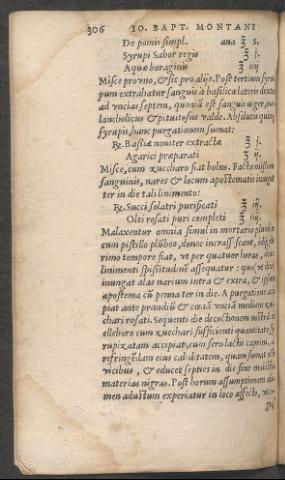 306 IO. BAPT. MONTANI
De pomis simpl. ana ℥ s.
Syrupi Sabor regis ℥ j.
Aquæ boraginis ℥ iiij
Misce pro vno, & sic pro alijs. Post tertium syru-
pum extrahatur sanguis à basilica lateris dextri
ad vncias septem, quoniā est sanguis niger, me-
lancholicus & pituitosus valde. Absolutis quinq;
syrupis, hanc purgationem sumat:
℞. Cassiæ nouiter extractæ ℥ j.
Agarici præparati ℥ ij
Misce, cum zuccharo fiat bolus. Facta missione
sanguinis, nares & locum apostematis inungat
ter in die tali linimento:
℞. Succi solatri purificati ℥ ij.
Olei rosati puri completi ℥ iiij.
Malaxentur omnia simul in mortario plumbeo
cum pistillo plūbeo, donec incrassescant, idq́;
rimo tempore fiat, vt per quatuor horas, donec
linimenti spissitudinē assequatur: quo vt dixi,
inungat alas narium intra & extra, & ipsum
apostema cū penna ter in die. A purgatione acci-
piat ante prandiū & cœnā vnciā mediam zuc-
chari rosati. Sequenti die decoctionem nostrā ex
elleboro cum zucchari sufficienti quantitate, sy-
rupizatam accipiat, cum sero lactis caprini, ad
refringēdam eius caliditatem, quam sumat
vicibus, & educet septies in die sine molestia
materias nigras. Post horum assumptionem
men adustum experiatur in loco affecto,